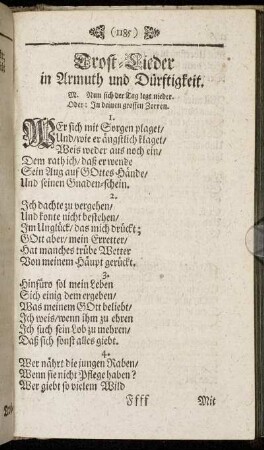 (1185)
Trost-Lieder
in Armuth und Dürftigkeit.
M. Nun sich der Tag legt nieder.
Oder: In deinen grossen Zorren.
1.
WEr sich mit Sorgen plaget/
Und/wie er ängstlich klaget/
Weis weder aus noch ein/
Dem rath ich/ daß er wende
Sein Aug auf GOttes Hände/
Und seinen Gnaden-schein.
2.
Ich dachte zu vergehen/
Und konte nicht bestehen/
Im Unglück/ das mich drückt;
GOtt aber/ mein Erretter/
Hat manches trübe Wetter
Von meinem Häupt gerückt.
3.
Hinfüro sol mein Leben
Sich einig dem ergeben/
Was meinem GOtt beliebt/
Ich weis/ wenn ihm zu ehren
Ich such sein Lob zu mehren/
Daß sich sonst alles giebt.
4.
Wer nährt die jungen Raben/
Wenn sie nicht Pflege haben?
Wer giebt so vielem Wild
Ffff Mit